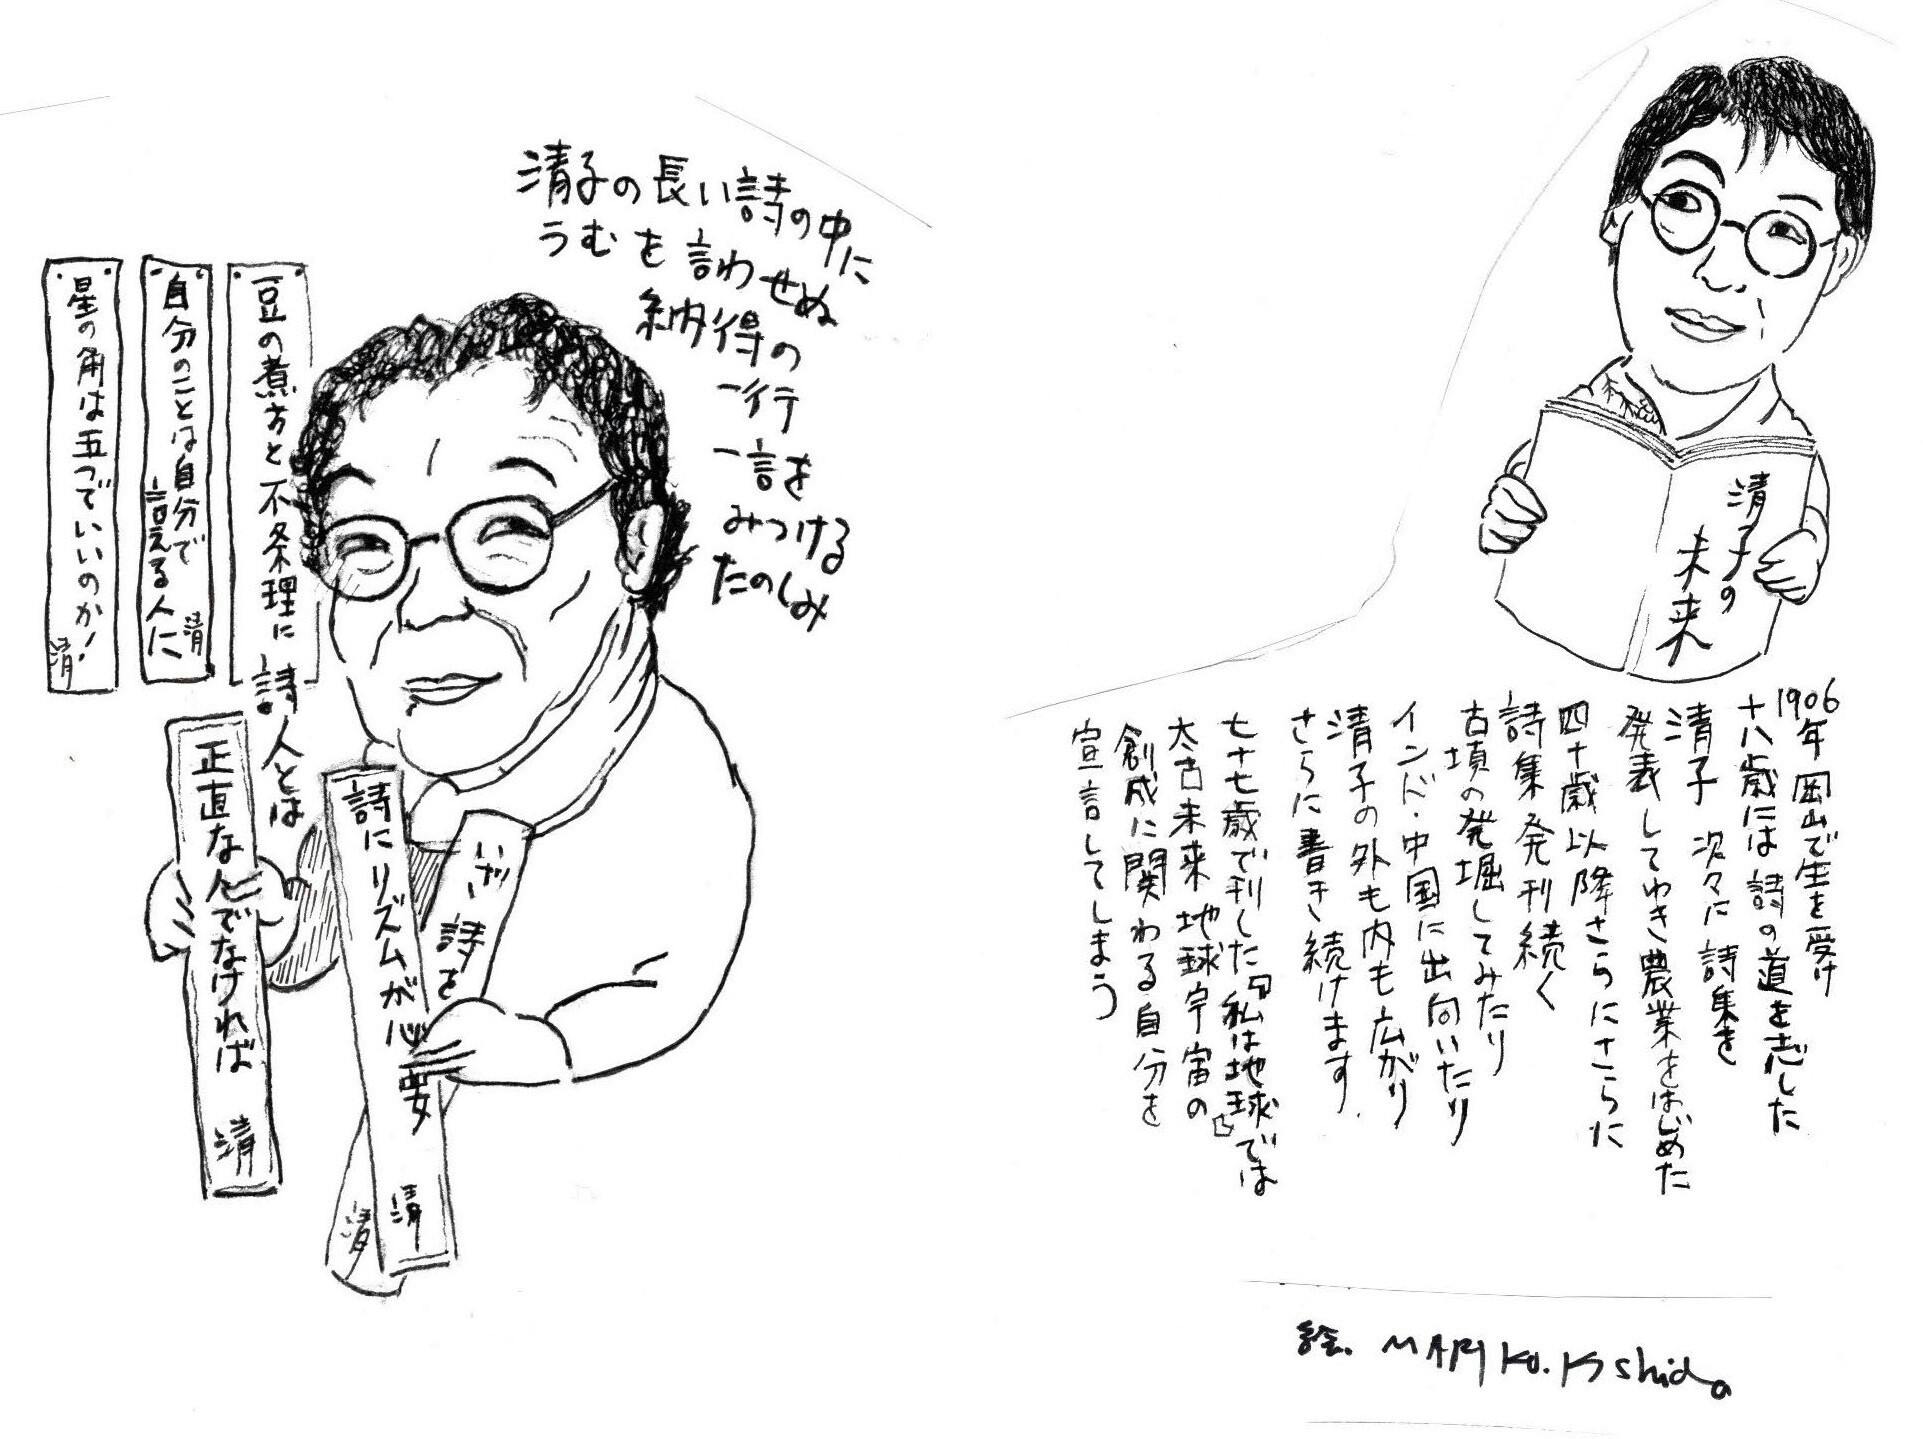 清子の長い詩の中に
うむを言わせぬ
納得の
一行
一言を
みつける
たのしみ
豆の煮方と不条理に
自分のことは自分で
言える人に 清
星の角は五つでいいのか! 清
詩人とは
正直な人でなければ 清
詩にリズムが必要 清
いざ、詩を
清
清子の
未来
1906年 岡山で生を受け
十八歳には詩の道を志した
清子 次々に詩集を
発表してわき農業をはじめた
四十歳以降さらにさらに
詩集発刊続く
古墳の発堀してみたり
インド・中国に出向いたり
清子の外も内も広がり
さらに書き続けます.
七十七歳で刊した『私は地球』では
太古未来地球宇宙の
創成に関わる自分を
宣言してしまう
絵. MARIKO.Kishida